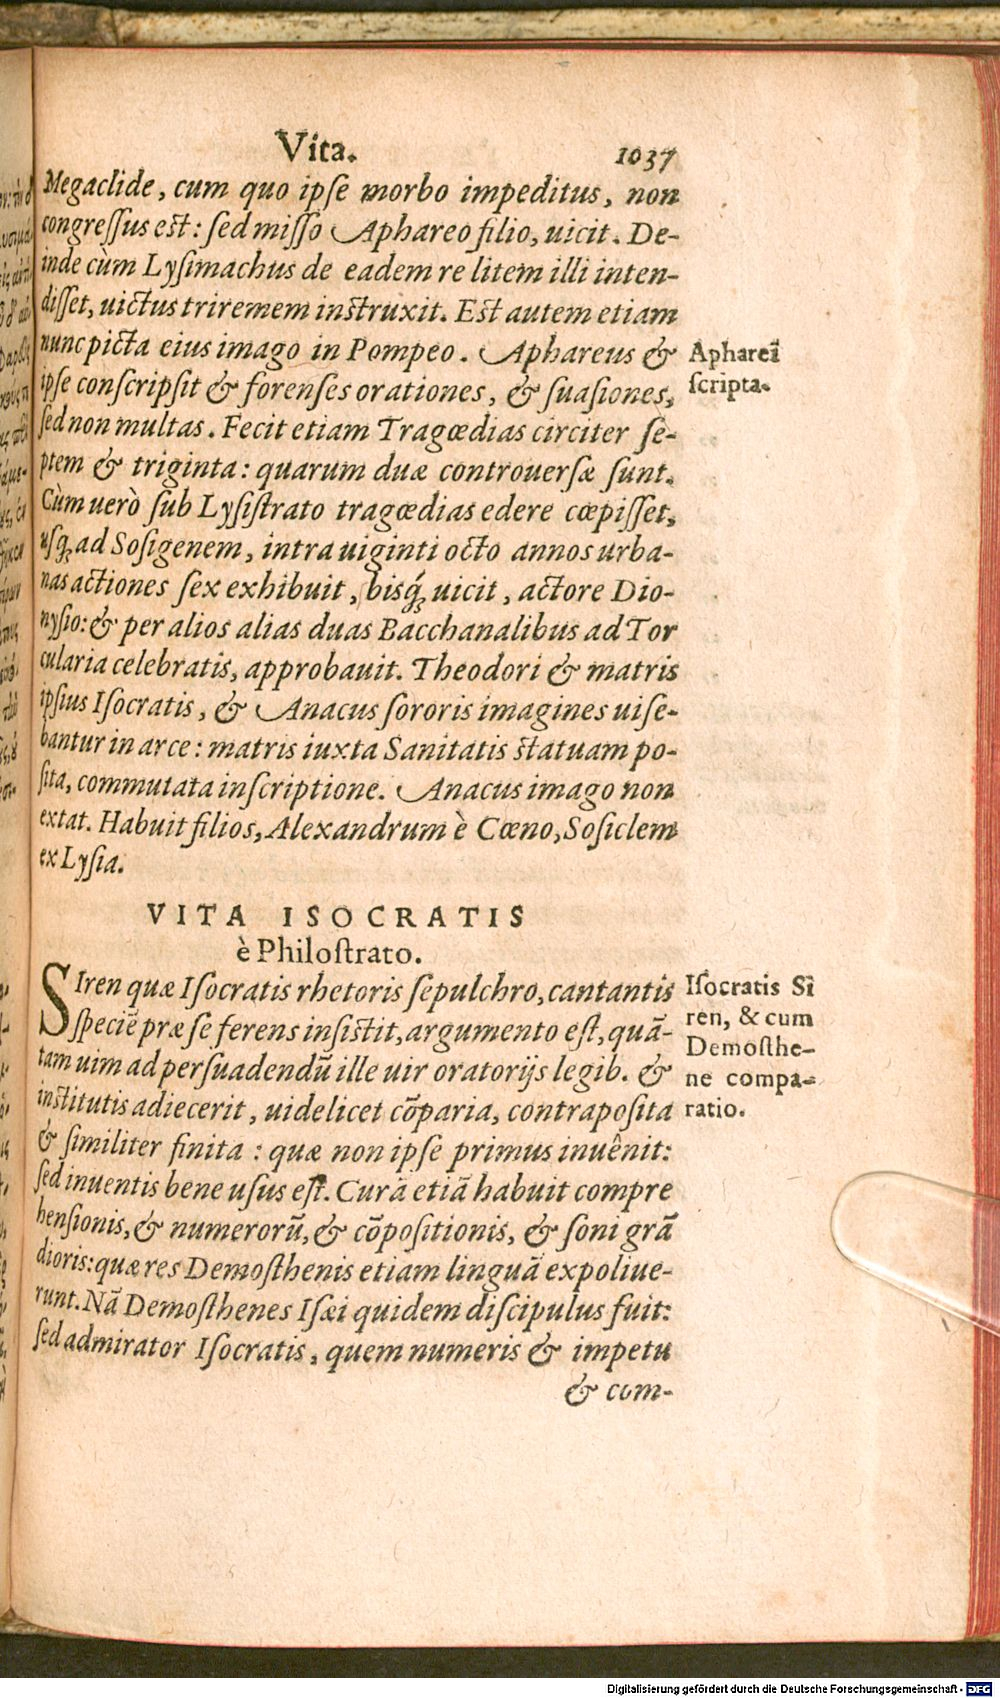 Vita. 1037
Megaclide, cum quo ipſe morbo impeditus, non
congreſſus est: ſed miſſo Aphareo filio, uicit. De-
inde cùm Lyſimachus de eadem re litem illi inten-
diſſet, uictus triremem instruxit. Est autem etiam
nunc picta eius imago in Pompeo. Aphareus &
ipſe conſcripſit & forenſes orationes, & ſuaſiones,
ſed non multas. Fecit etiam Tragœdias circiter ſe-
ptem & triginta: quarum duæ controuerſæ ſunt.
Cùm uerò ſub Lyſiſtrato tragœdias edere cœpiſſet,
uſq; ad Soſigenem, intra uiginti octo annos urba-
nas actiones ſex exhibuit, bisq́; uicit, actore Dio-
nyſio: & per alios alias duas Bacchanalibus ad Tor
cularia celebratis, approbauit. Theodori & matris
ipſius Iſocratis, & Anacus ſororis imagines uiſe-
bantur in arce: matris iuxta Sanitatis statuam po-
ſita, commutata inſcriptione. Anacus imago non
extat. Habuit filios, Alexandrum è Cœno, Soſiclem
ex Lyſia.
Apharei
ſcripta.
VITA ISOCRATIS
è Philoſtrato.
SIren quæ Iſocratis rhetoris ſepulchro, cantantis
ſpeciē præ ſe ferens inſistit, argumento eſt, quā-
tam uim ad perſuadendū ille uir oratorijs legib. &
institutis adiecerit, uidelicet cōparia, contrapoſita
& ſimiliter finita : quæ non ipſe primus inuênit:
ſed inuentis bene uſus eſt. Curā etiā habuit compre
henſionis, & numerorū, & cōpoſitionis, & ſoni grā
dioris: quæ res Demoſthenis etiam linguā expoliue-
runt. Nā Demoſthenes Iſæi quidem diſcipulus fuit:
ſed admirator Iſocratis, quem numeris & impetu
& com-
Iſocratis Si
ren, & cum
Demoſthe-
ne compa-
ratio.
Digitalisierung gefördert durch die Deutsche Forschungsgemeinschaft - DFG